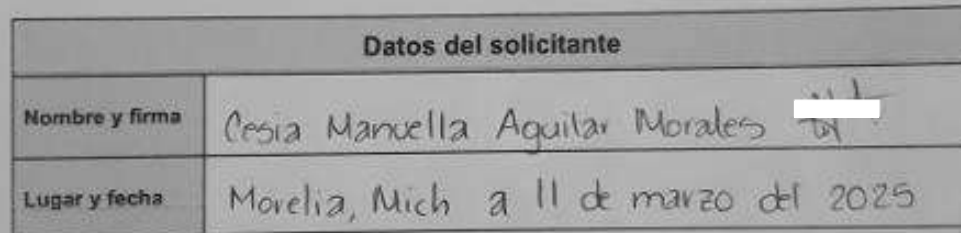 Datos del solicitante
Nombre y firma Cesia Manuella Aguilar Morales
Lugar y fecha Morelia, Mich a 11 de marzo del 2025